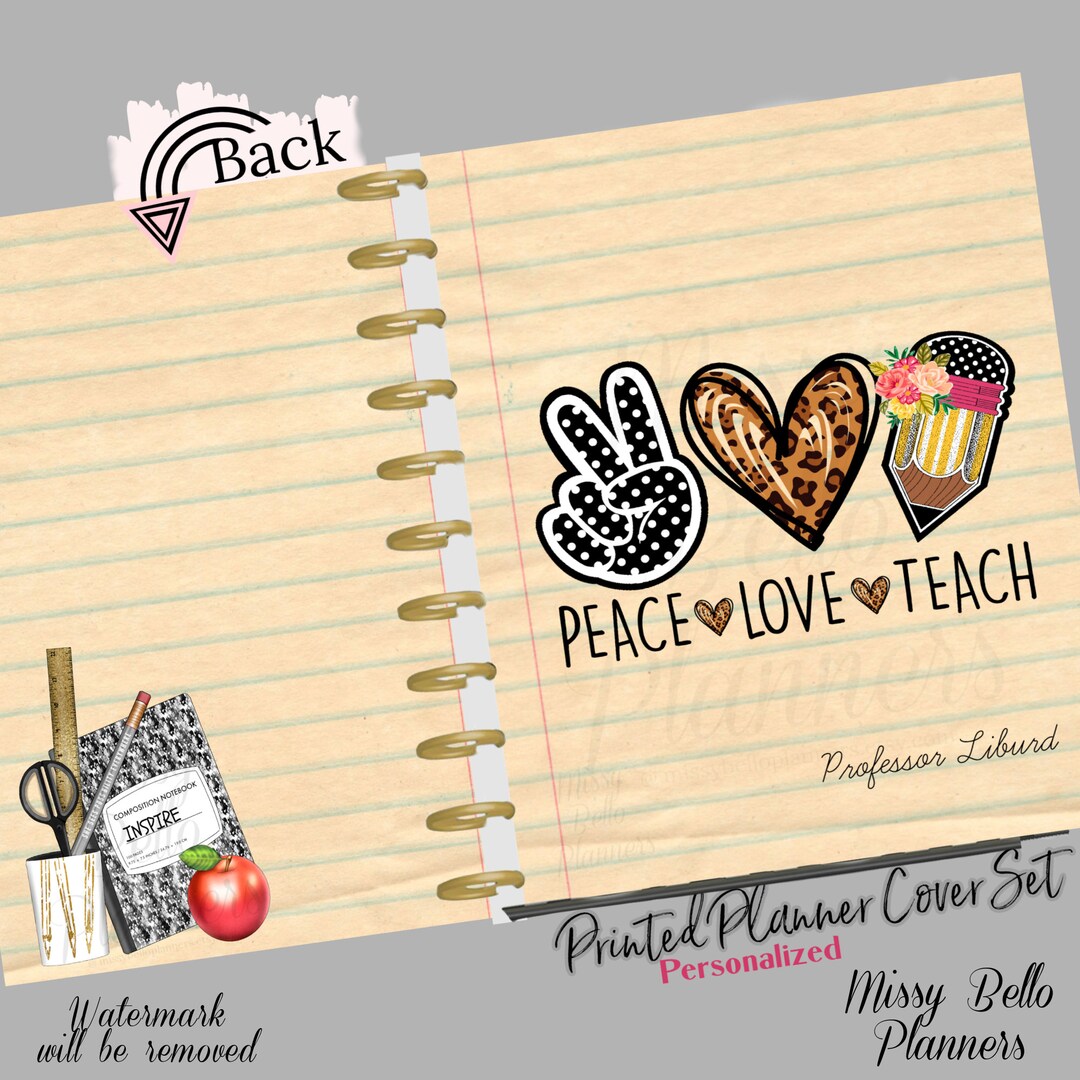 Back
PEACE LOVE TEACH
Professor Liburd
COMPOSITION NOTEBOOK
INSPIRE
Missy
Bello
Planners
Printed Planner Cover Set
Personalized
Missy Bello
Planners
Watermark
will be removed